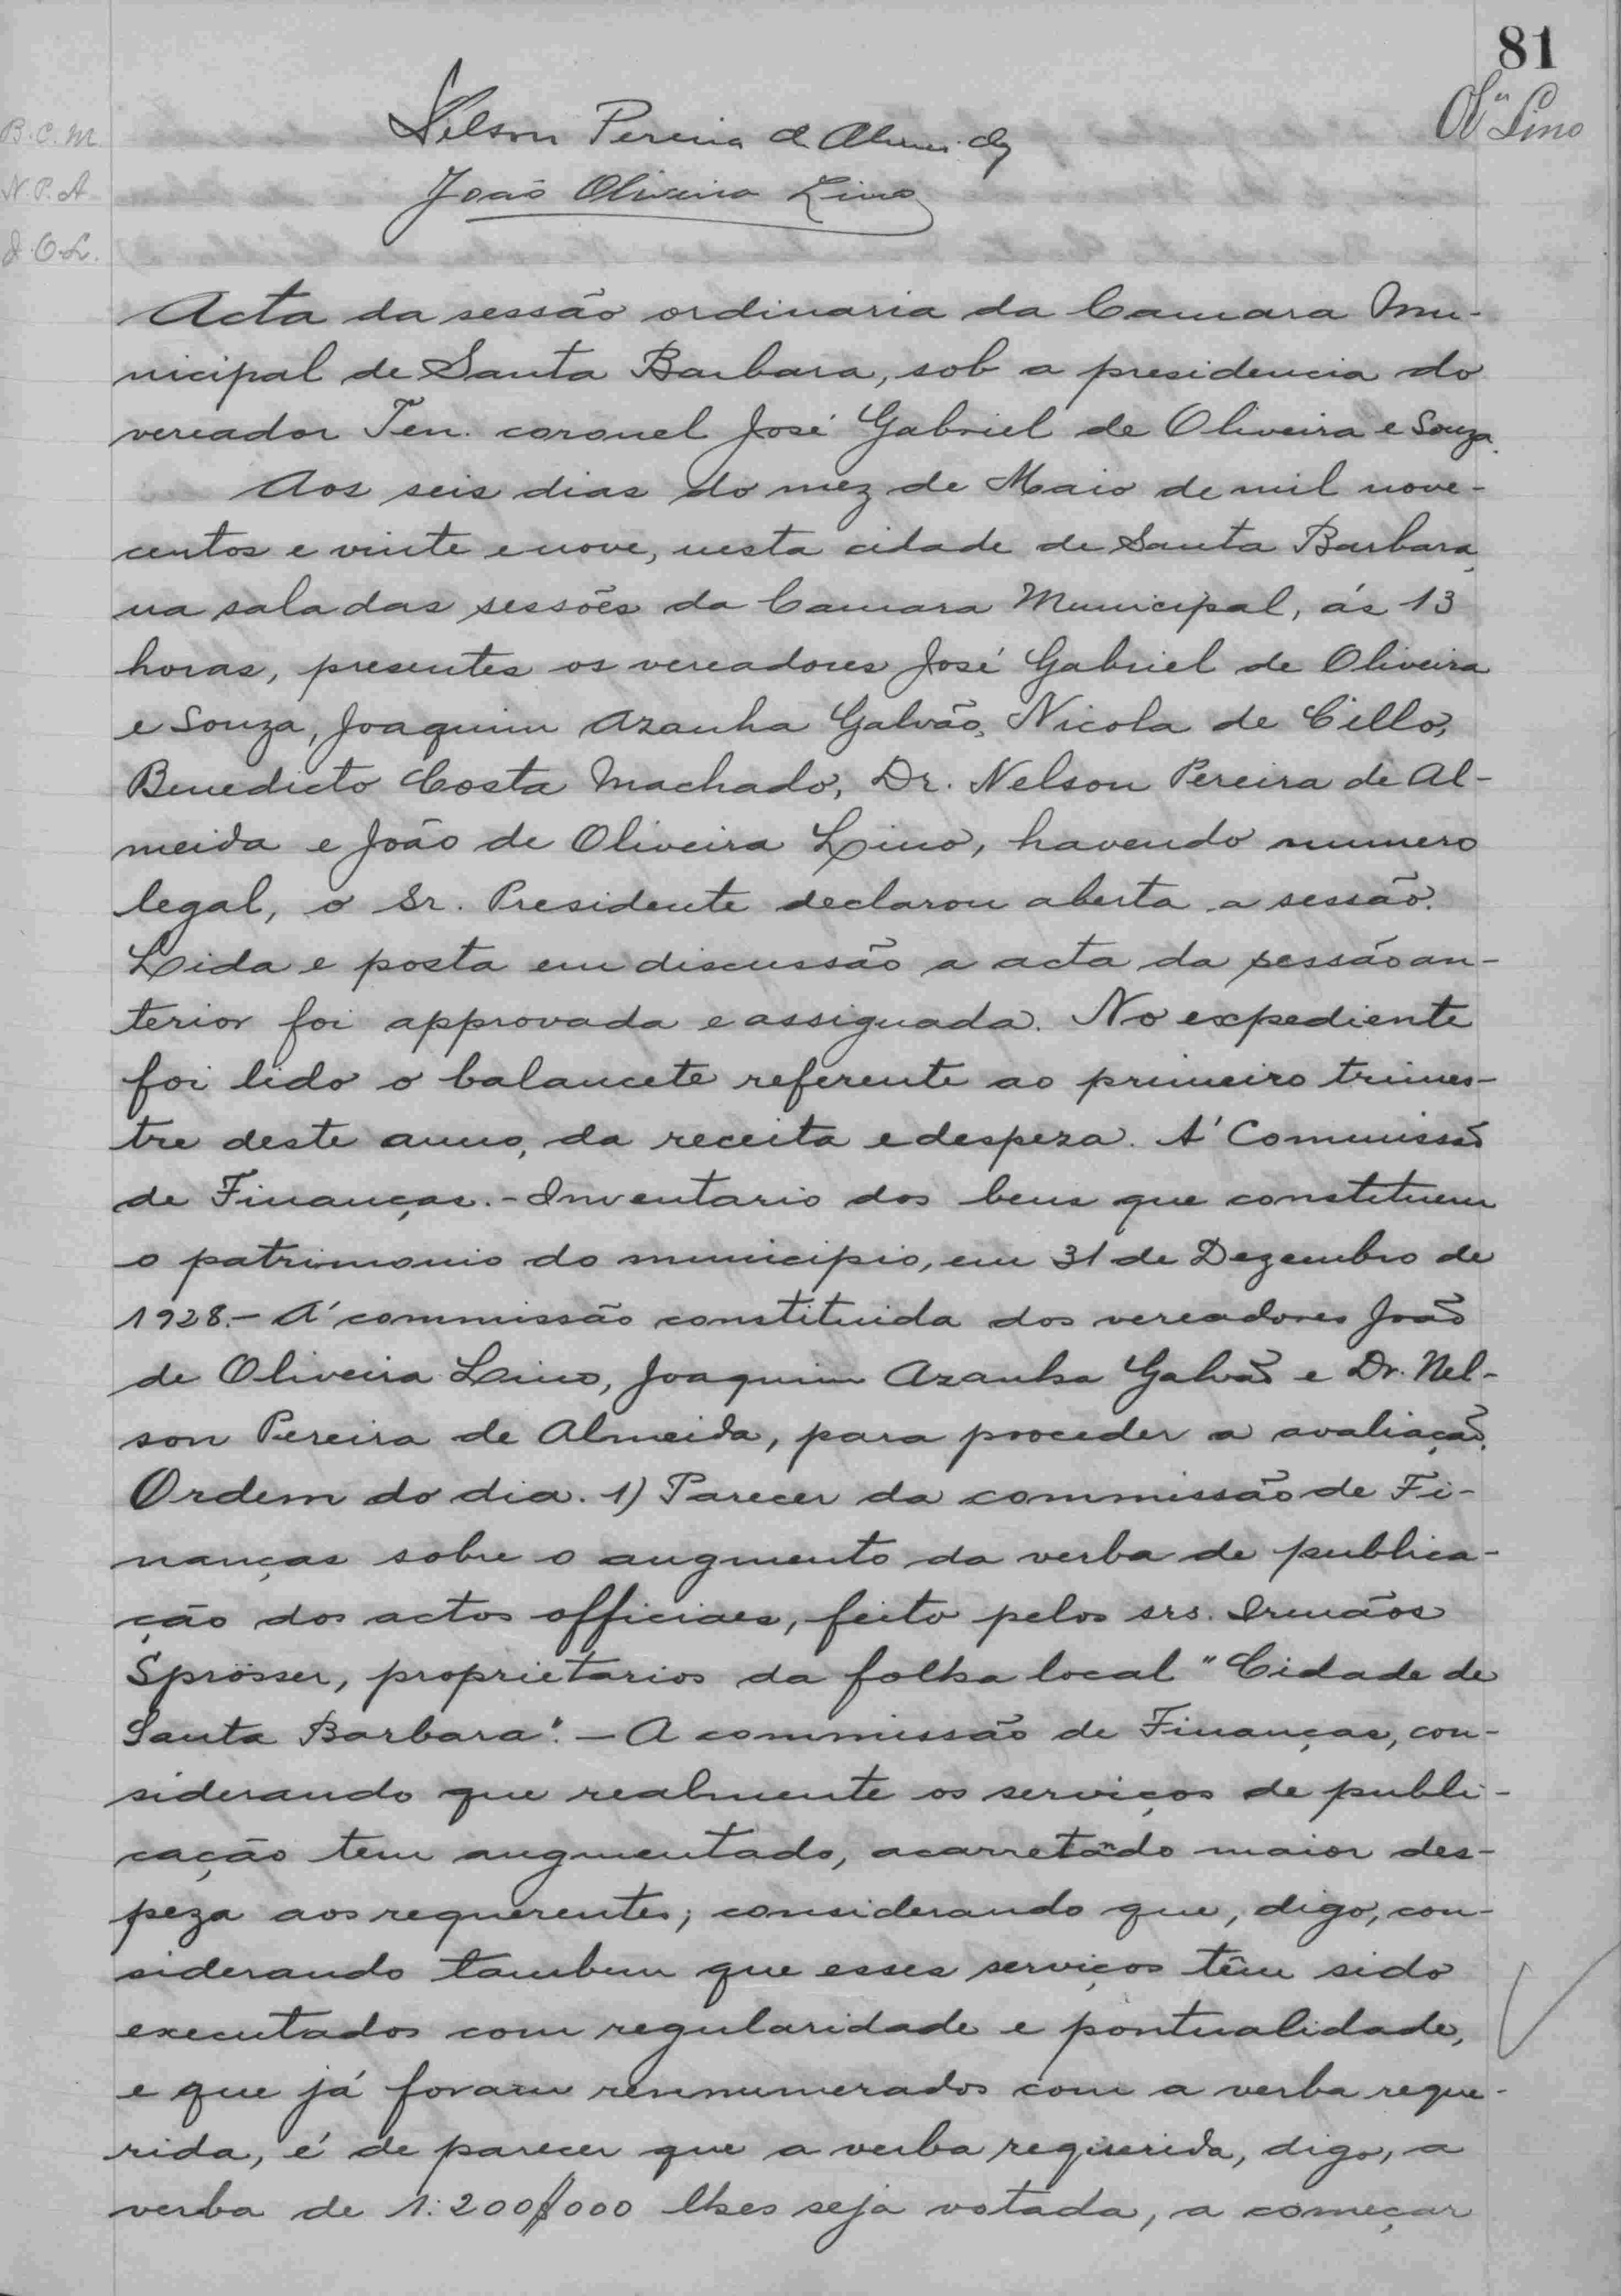 81
Ol.ª Lino
B.C.M.
Nelson Pereira de Almeida
N.P.A
João Oliveira Lino
J.O.L.
Acta da sessão ordinaria da Camara Mu-
nicipal de Santa Barbara, sob a presidencia do
vereador Ten. coronel José Gabriel de Oliveira e Souza.
Aos seis dias do mez de Maio de mil nove-
centos e vinte e nove, nesta cidade de Santa Barbara,
na sala das sessões da Camara Municipal, ás 13
horas, presentes os vereadores José Gabriel de Oliveira
e Souza, Joaquim Aranha Galvão, Nicola de Cillo,
Benedicto Costa Machado, Dr. Nelson Pereira de Al-
meida e João de Oliveira Lino, havendo numero
legal, o Sr. Presidente declarou aberta a sessão.
Lida e posta em discussão a acta da sessão an-
terior foi approvada e assignada. No expediente
foi lido o balancete referente ao primeiro trimes-
tre deste anno, da receita e despesa. A' Commissão
de Finanças. - Inventario dos bens que constituem
o patrimonio do municipio, em 31 de Dezembro de
1928. - A' commissão constituida dos vereadores João
de Oliveira Lino, Joaquim Aranha Galvão e Dr. Nel-
son Pereira de Almeida, para proceder a avaliação.
Ordem do dia. 1) Parecer da commissão de Fi-
nanças sobre o augmento da verba de publica-
ção dos actos officiaes, feito pelos srs. Irmãos
Sprösser, proprietarios da folha local "Cidade de
Santa Barbara". - A commissão de Finanças, con-
siderando que realmente os serviços de publi-
cação tem augmentado, acarretãdo maior des-
peza aos requerentes; considerando que, digo, con-
siderando tambem que esses serviços têm sido
executados com regularidade e pontualidade,
e que já foram renmumerados com a verba reque-
rida, é de parecer que a verba requerida, digo, a
verba de 1:200$000 lhes seja votada, a começar